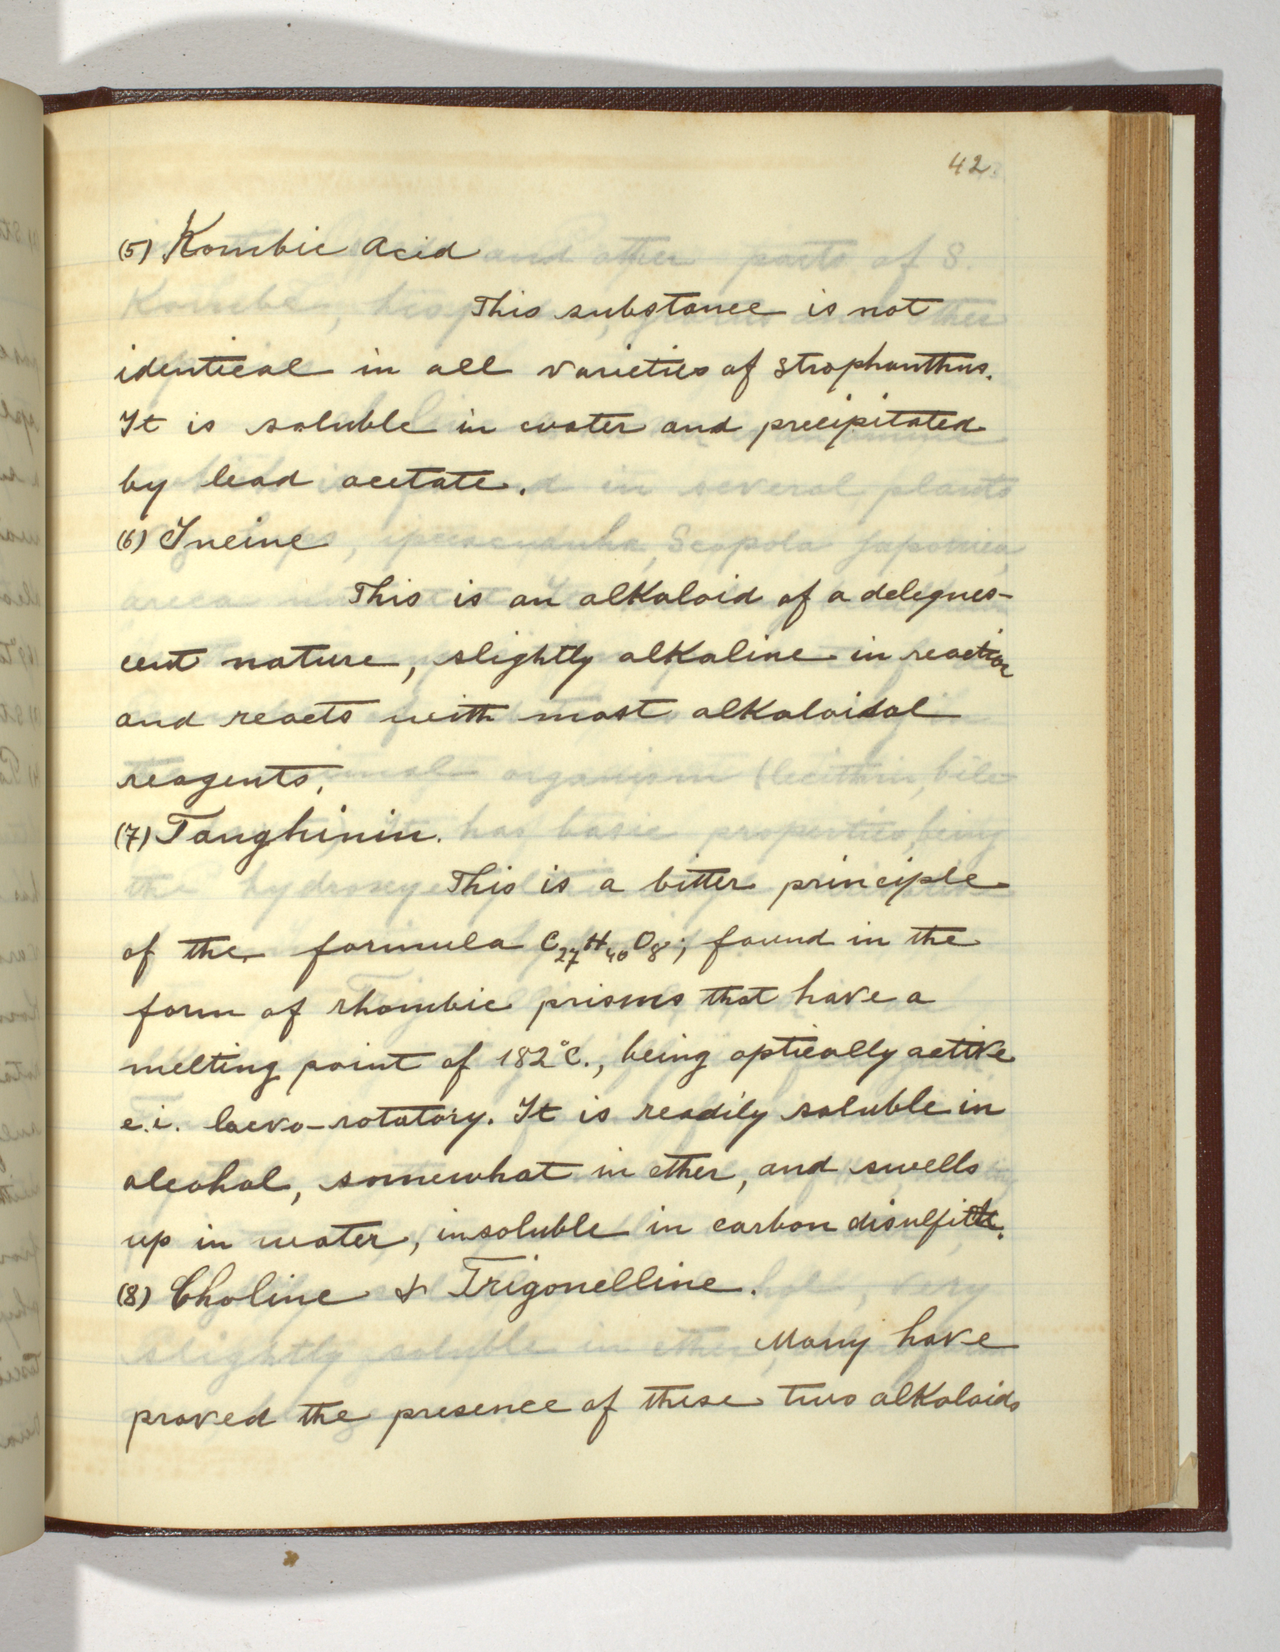 42
(5) Kombic Acid
This substance is not
identical in all varieties of Strophanthus.
It is soluble in water and precipitated
by lead acetate.
(6) Ineine
This is an alkaloid of a deleques-
cent nature, slightly alkaline in reaction
and reacts with most alkaloidal
reagents.
(7) Tanghinin.
This is a bitter principle
of the formula C₂₇H₄₀O₈; found in the
form of rhombic prisms that have a
melting point of 182°C., being optically active
e.i. laevo-rotatory. It is readily soluble in
alcohol, somewhat in ether, and swells
up in water, insoluble in carbon
(8) Choline & Trigonelline.
Many have
proved the presence of these two alkaloids